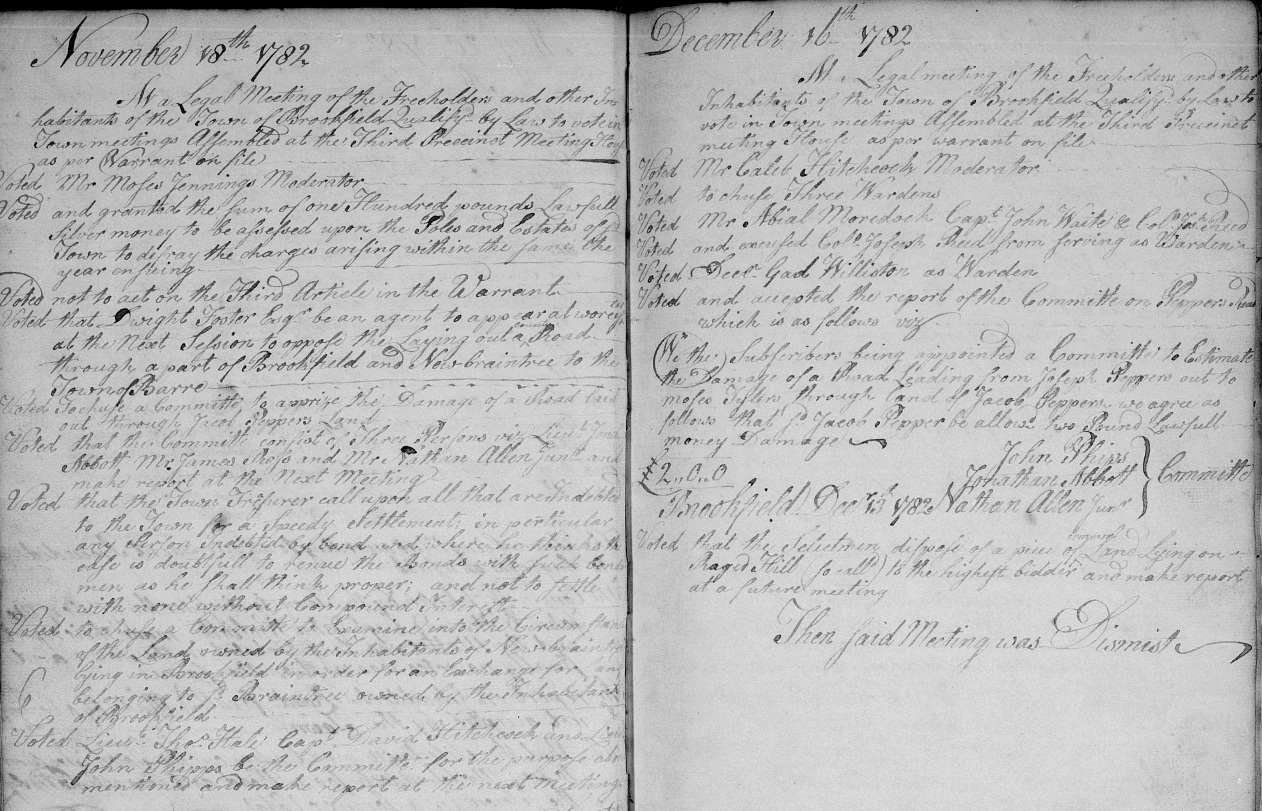 November 18th 1782
At a Legal Meeting of the Freeholders and other In
habitants of the Town of Brookfield Qualify'd by Law to vote in
Town meetings Assembled at the Third Precinct Meeting Hous
as per Warrant on file
Voted Mr Moses Jennings Moderator
Voted and granted the sum of one Hundred pounds Lawfull
silver money to be assessed upon the Poles and Estates of sd
Town to defray the charges arising within the same the
year ensuing
Voted not to act on the Third Article in the Warrant
Voted that Dwight Foster Esqr be an agent to appear at worcester
at the Next Session to oppose the Laying out a Road
through a part of Brookfield and Newbraintree to the
Town of Barre
Voted To chuse a Committe to apprize the Damage of a Road laid
out through Jacob Peppers Land
Voted that the Committe consist of Three Persons viz Lieut Jona
Abbott Mr James Ross and Mr Nathan Allen Junr and
make report at the Next Meeting
Voted that the Town Tresurer call upon all that are Indebted
to the Town for a Speedy Settlement, in particular
any Person Indebted by bond and where he thinks the
case is doubtfull to renue the Bonds with such bonds
men as he shall think proper; and not to settle
with none without Compound Interest
Voted to chuse a Committe to Examine into the Circumstan
of the Land owned by the Inhabitants of New-braintre
lying in Brookfield in order for an Exchange for Land
belonging to sd Braintree owned by the Inhabitant
of Brookfield
Voted Lieut Thos Hale Capt David Hitchcock and Lieut
John Phipps be the Committe for the purpose abo
mentioned and make report at the next Meeting
December 16th 1782
At a Legal meeting of the Freeholders and other
Inhabitants of the Town of Brookfield Qualify'd by Law to
vote in Town meetings Assembled at the Third Precinct
meeting House as per warrant on file
Voted Mr Caleb Hitchcock Moderator
Voted to chuse Three Wardens
Voted Mr Abial Moredock Capt John Waite & Colo Jos Reed
Voted and excused Colo Joseph Reed from serving as Warden
Voted Decn Gad Williston as Warden
Voted and accepted the report of the Committe on Peppers Road
which is as follows viz
We the Subscribers being appointed a Committe to Estimate
the Damage of a Road Leading from Joseph Peppers out to
moses Tylers through land of Jacob Peppers we agree as
follows that sd Jacob Pepper be allowd two Pound Lawfull
money Damage
John Phipps
£2,,0,,0 Jonathan Abbott } Committe
Brookfield Decr 13th 1782 Nathan Allen Junr
Voted that the Selectmen dispose of a piece of common Land Lying on
Raged Hill (so calld) to the highest bidder and make report
at a future meeting
Then said Meeting was Dismist